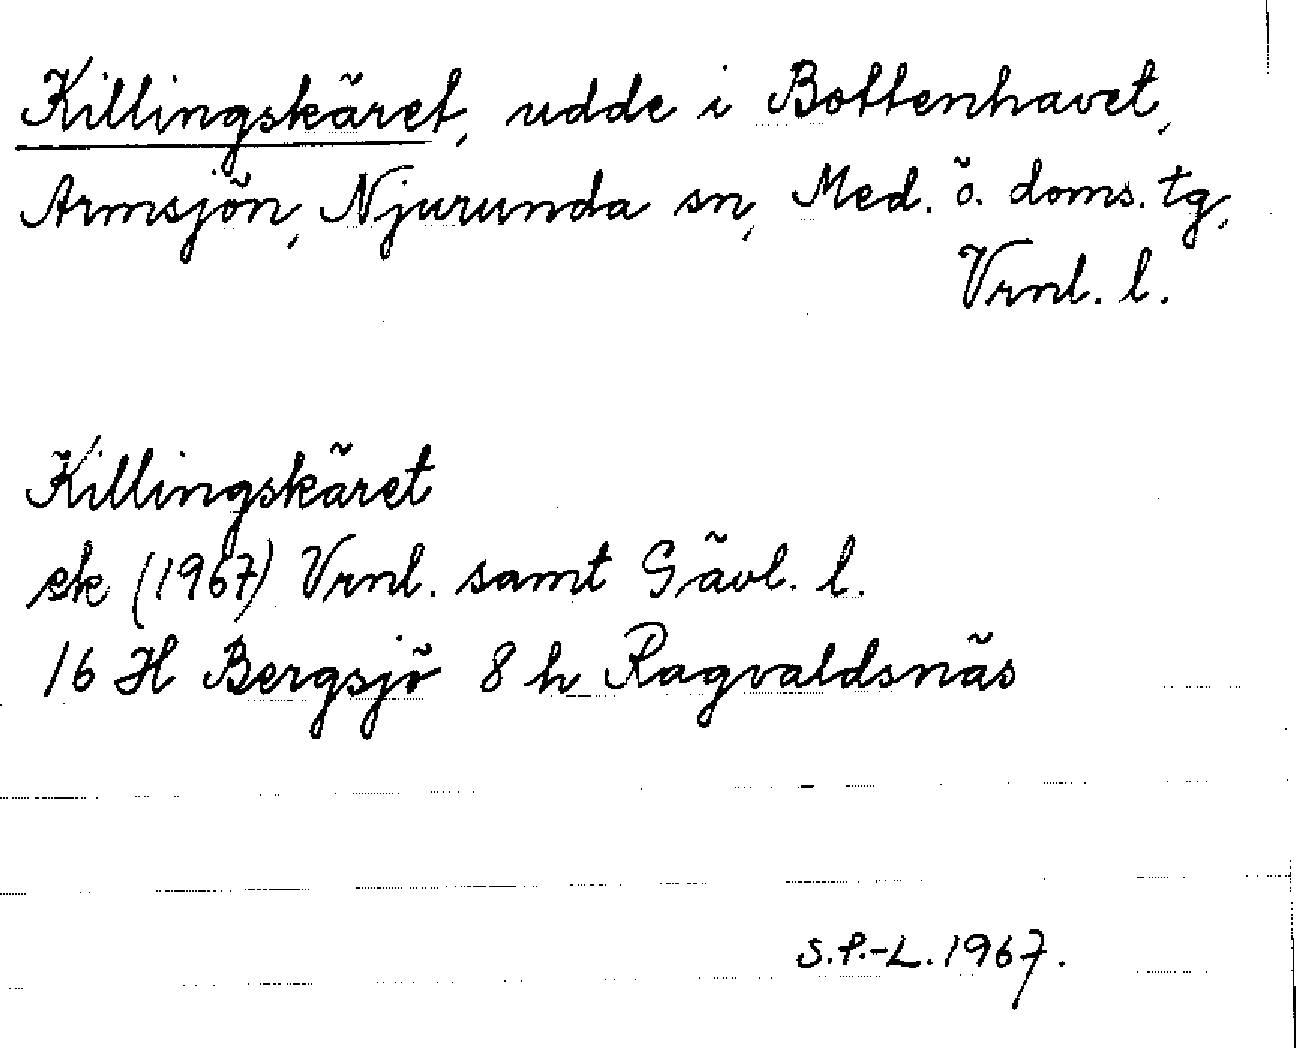 Killingskäret, udde i Bottenhavet,
Armsjön, Njurunda sn, Med. ö. doms. tg,
Vrnl. l.
Killingskäret
ek (1967) Vrnl. samt Gävl. l.
16 H Bergsjö 8 h Ragvaldsnäs
S.P.-L. 1967.